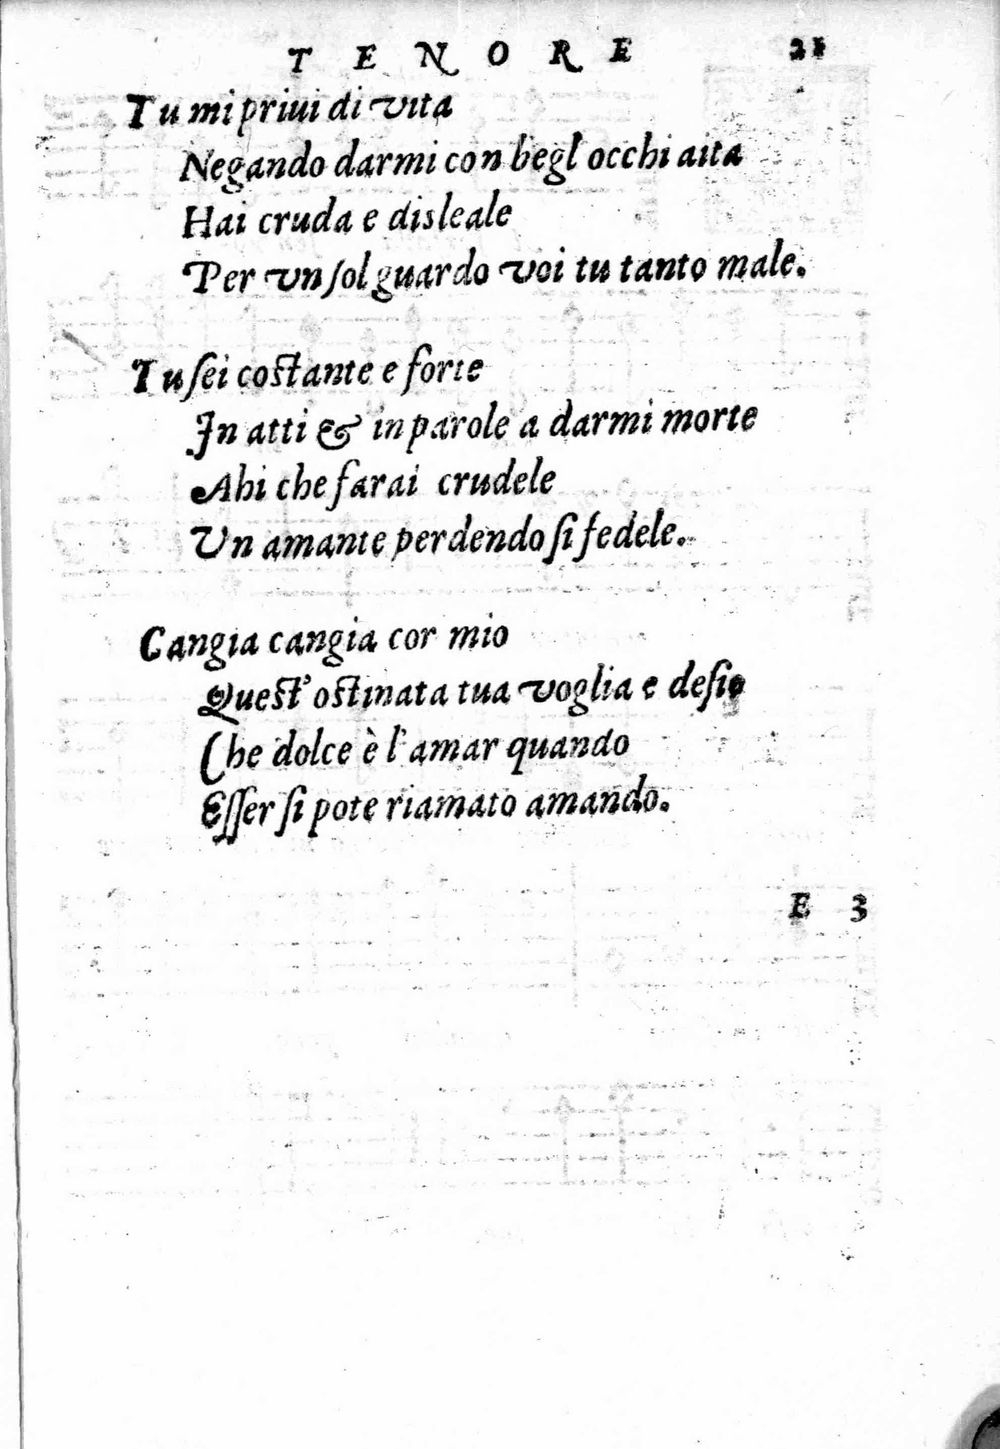 TENORE 21
Tu mi priui di vita
Negando darmi con begl'occhi aita
Hai cruda e disleale
Per vn sol guardo voi tu tanto male.
Tu sei costante e forte
In atti & in parole a darmi morte
Ahi che farai crudele
Vn amante perdendo si fedele.
Cangia cangia cor mio
Quest'ostinata tua voglia e desio
Che dolce è l'amar quando
Esser si pote riamato amando.
E 3